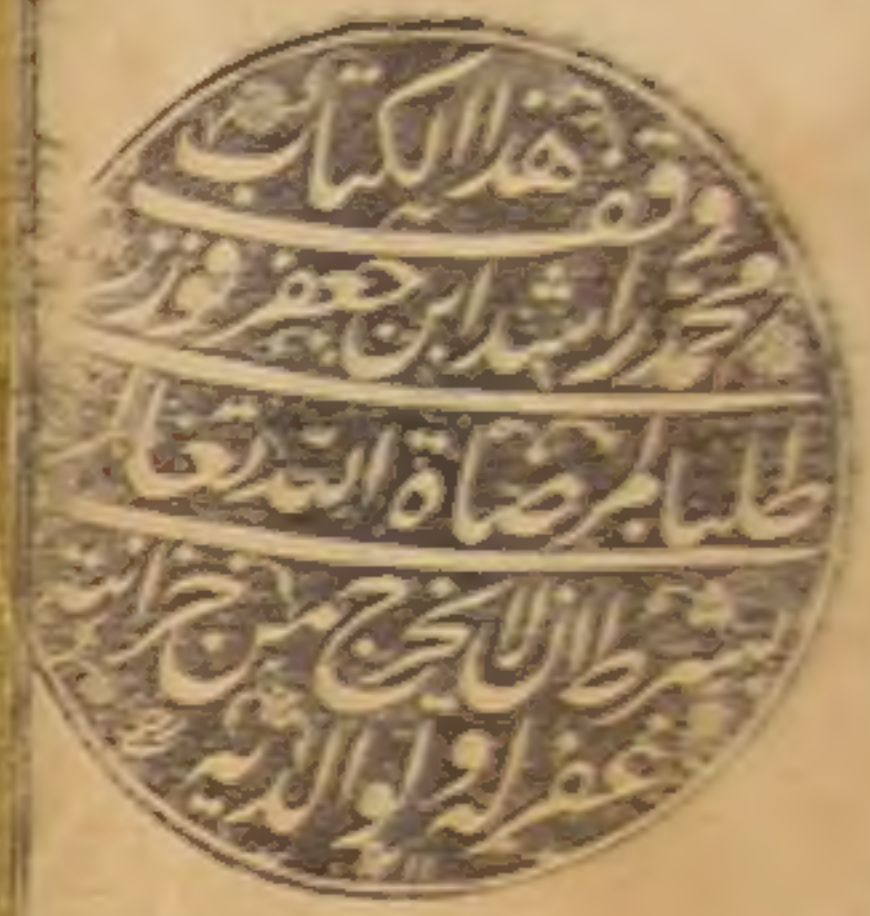 وقف هذا الكتاب
محمد راشد ابن جعفر فوزى
طلبا لمرضاة الله تعالى
بشرط ان لا يخرج من خزانته
غفر له ولوالديه